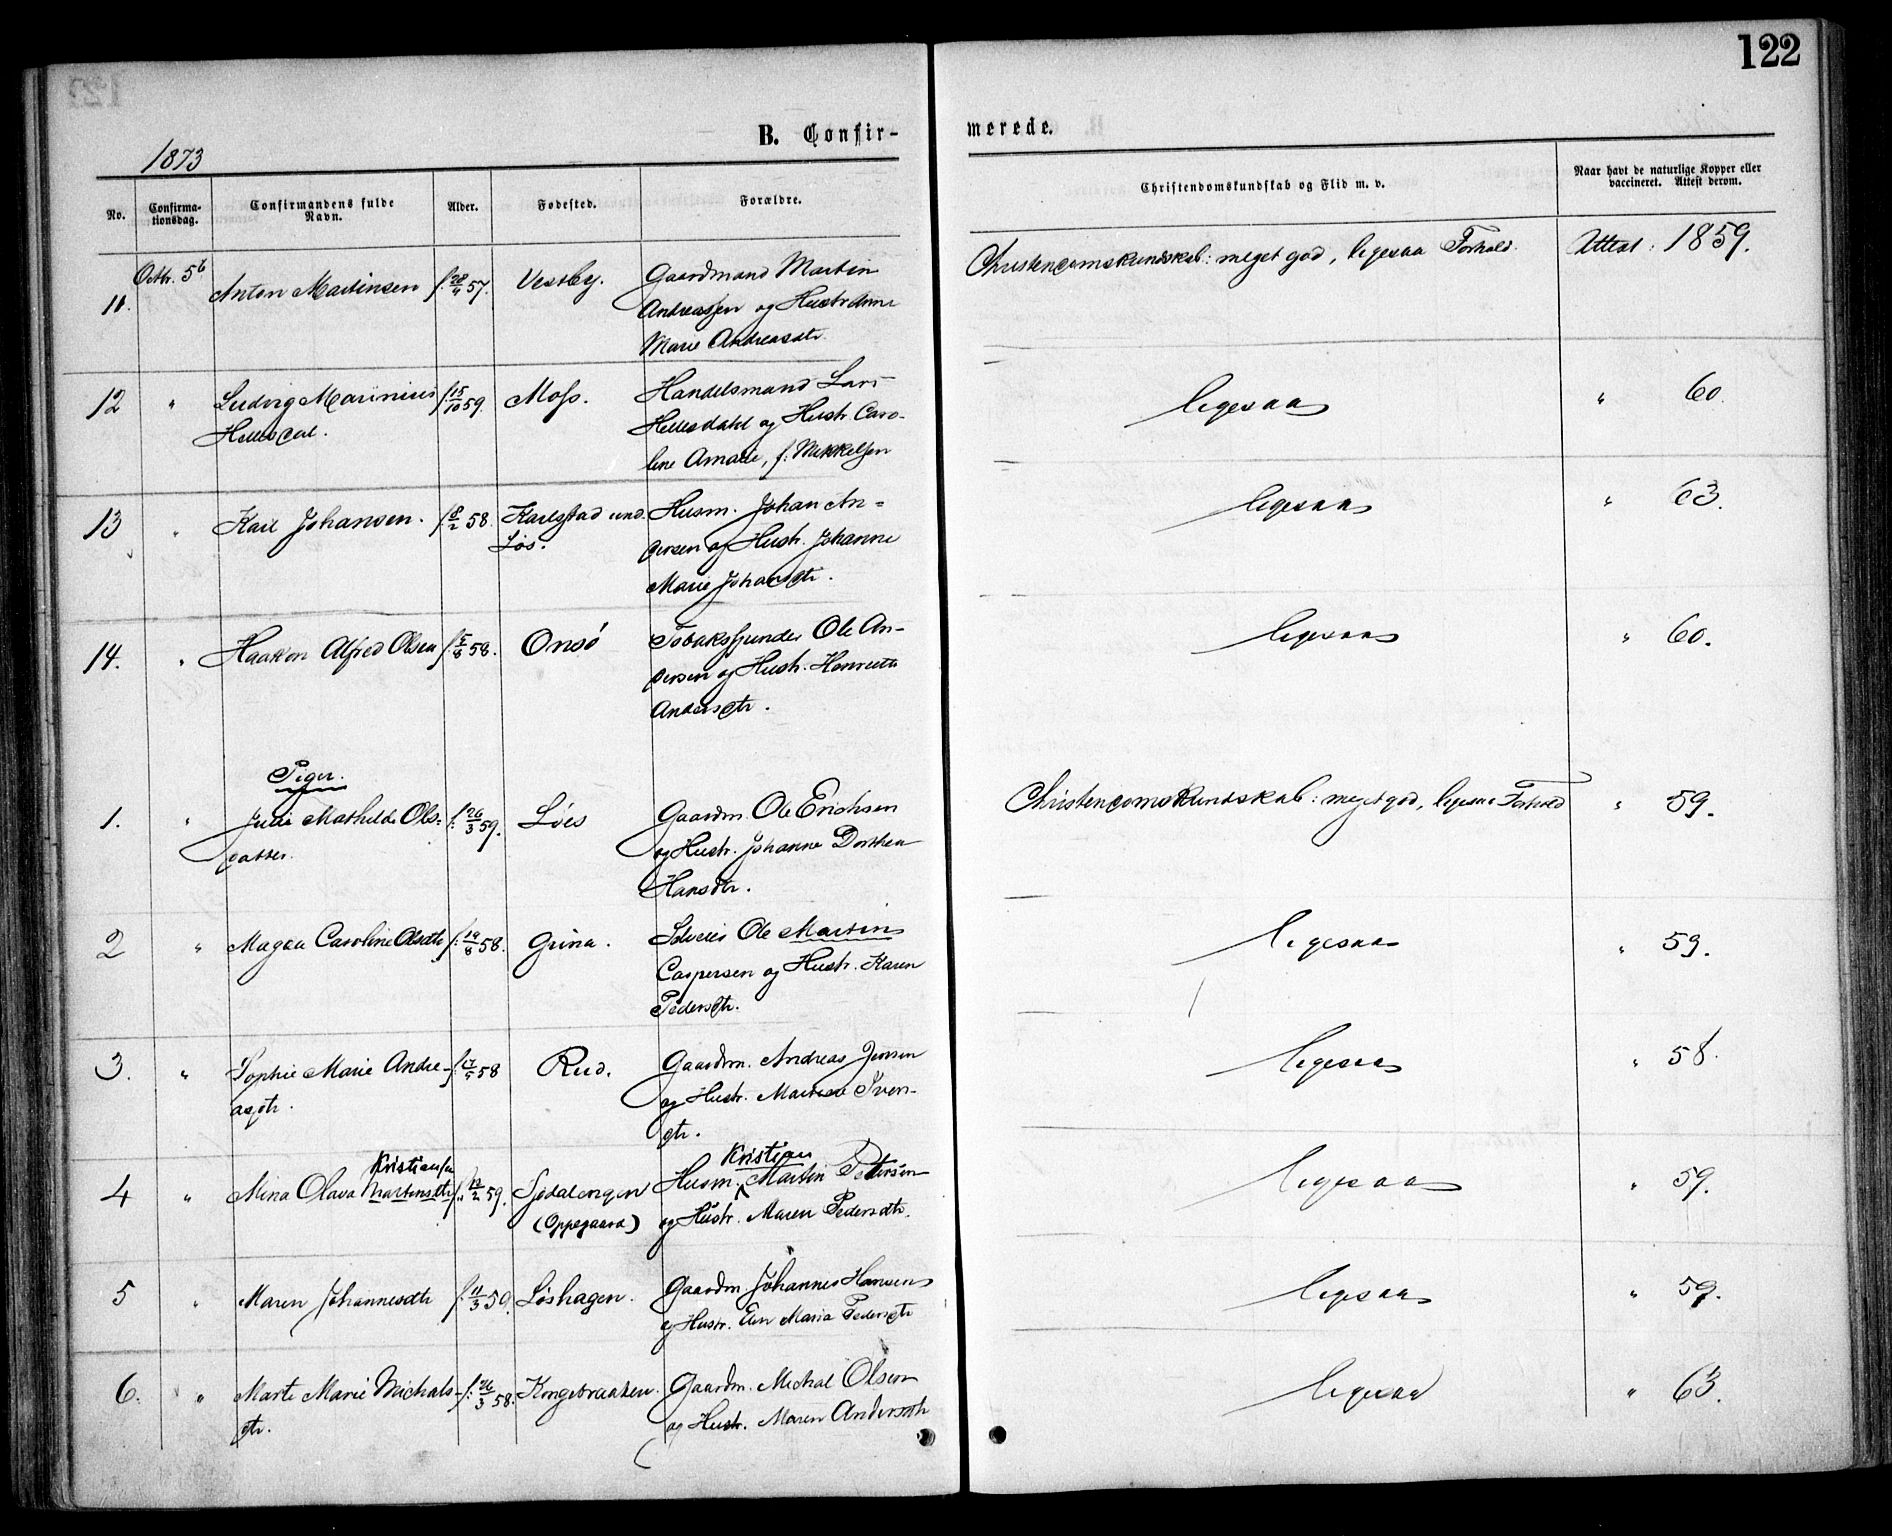 122
B. Confir-
merede.
1873
No.
Confirma-
tionsdag.
Confirmandens fulde
Navn.
Alder.
Fødested.
Forældre.
Christendomskundskab og Flid m. v.
Naar havt de naturlige Kopper eller
vaccineret. Attest derom.
11. Octbr. 5te Anton Martinsen f. 28/4 57. Vestby. Gaardmand Martin
Andreassen og Hustr Anne
Marie Andreasdtr.
Christendomskundskab: meget god, ligesaa Forhold. Attest: 1859.
12 " Ludvig Marinius f. 15/10 59. Moss. Handelsmand Lars
Hellesdahl og Hustr. Caro-
line Amalie, f. Mikkelsen
ligesaa " 60.
13 " Karl Johansen. f. 8/2 58. Karlstad und. Husm. Johan An-
Løs. dersen og Hustr. Johanne
Marie Johansdtr.
ligesaa " 63.
14. " Haakon Alfred Olsen f. 5/8 58. Onsø Tobaksspinder Ole An-
dersen og Hustr. Henriette
Andersdtr.
ligesaa " 60.
Piger.
1. " Julie Mathilde Ols- f. 26/3 59. Løes Gaardm. Ole Erichsen
datter. og Hustr. Johanne Dorthea
Hansdtr.
Christendomskundskab: meget god, ligesaa Forhold " 59.
2 " Magda Caroline Olsdtr f. 19/8 58. Grina. Ole Martin
Caspersen og Hustr. Karen
Pedersdtr.
ligesaa " 59.
3. " Sophie Marie Andre- f. 58 Rud. Gaardm. Andreas Jensen
asdtr. og Hustr. Mathea Iver-
dtr.
ligesaa " 58.
Kristiansen Kristian
4 " Mina Olava Martinsdtr f. 12/2 59. Sjødalengen Husm. Martin Petersen
(Oppegaard) og Hustr. Maren Pedersdtr.
ligesaa " 59.
5 " Maren Johannesdtr f. 11/3 59. Løshagen. Gaardm Johannes Hansen
og Hustr. Elen Maria Pedersdtr
ligesaa " 59.
6. " Marte Marie Michals- f. 26/3 58. Kongebraaten. Gaardm. Michal Olsen
dtr. og Hustr. Maren Andersdtr
ligesaa " 63.